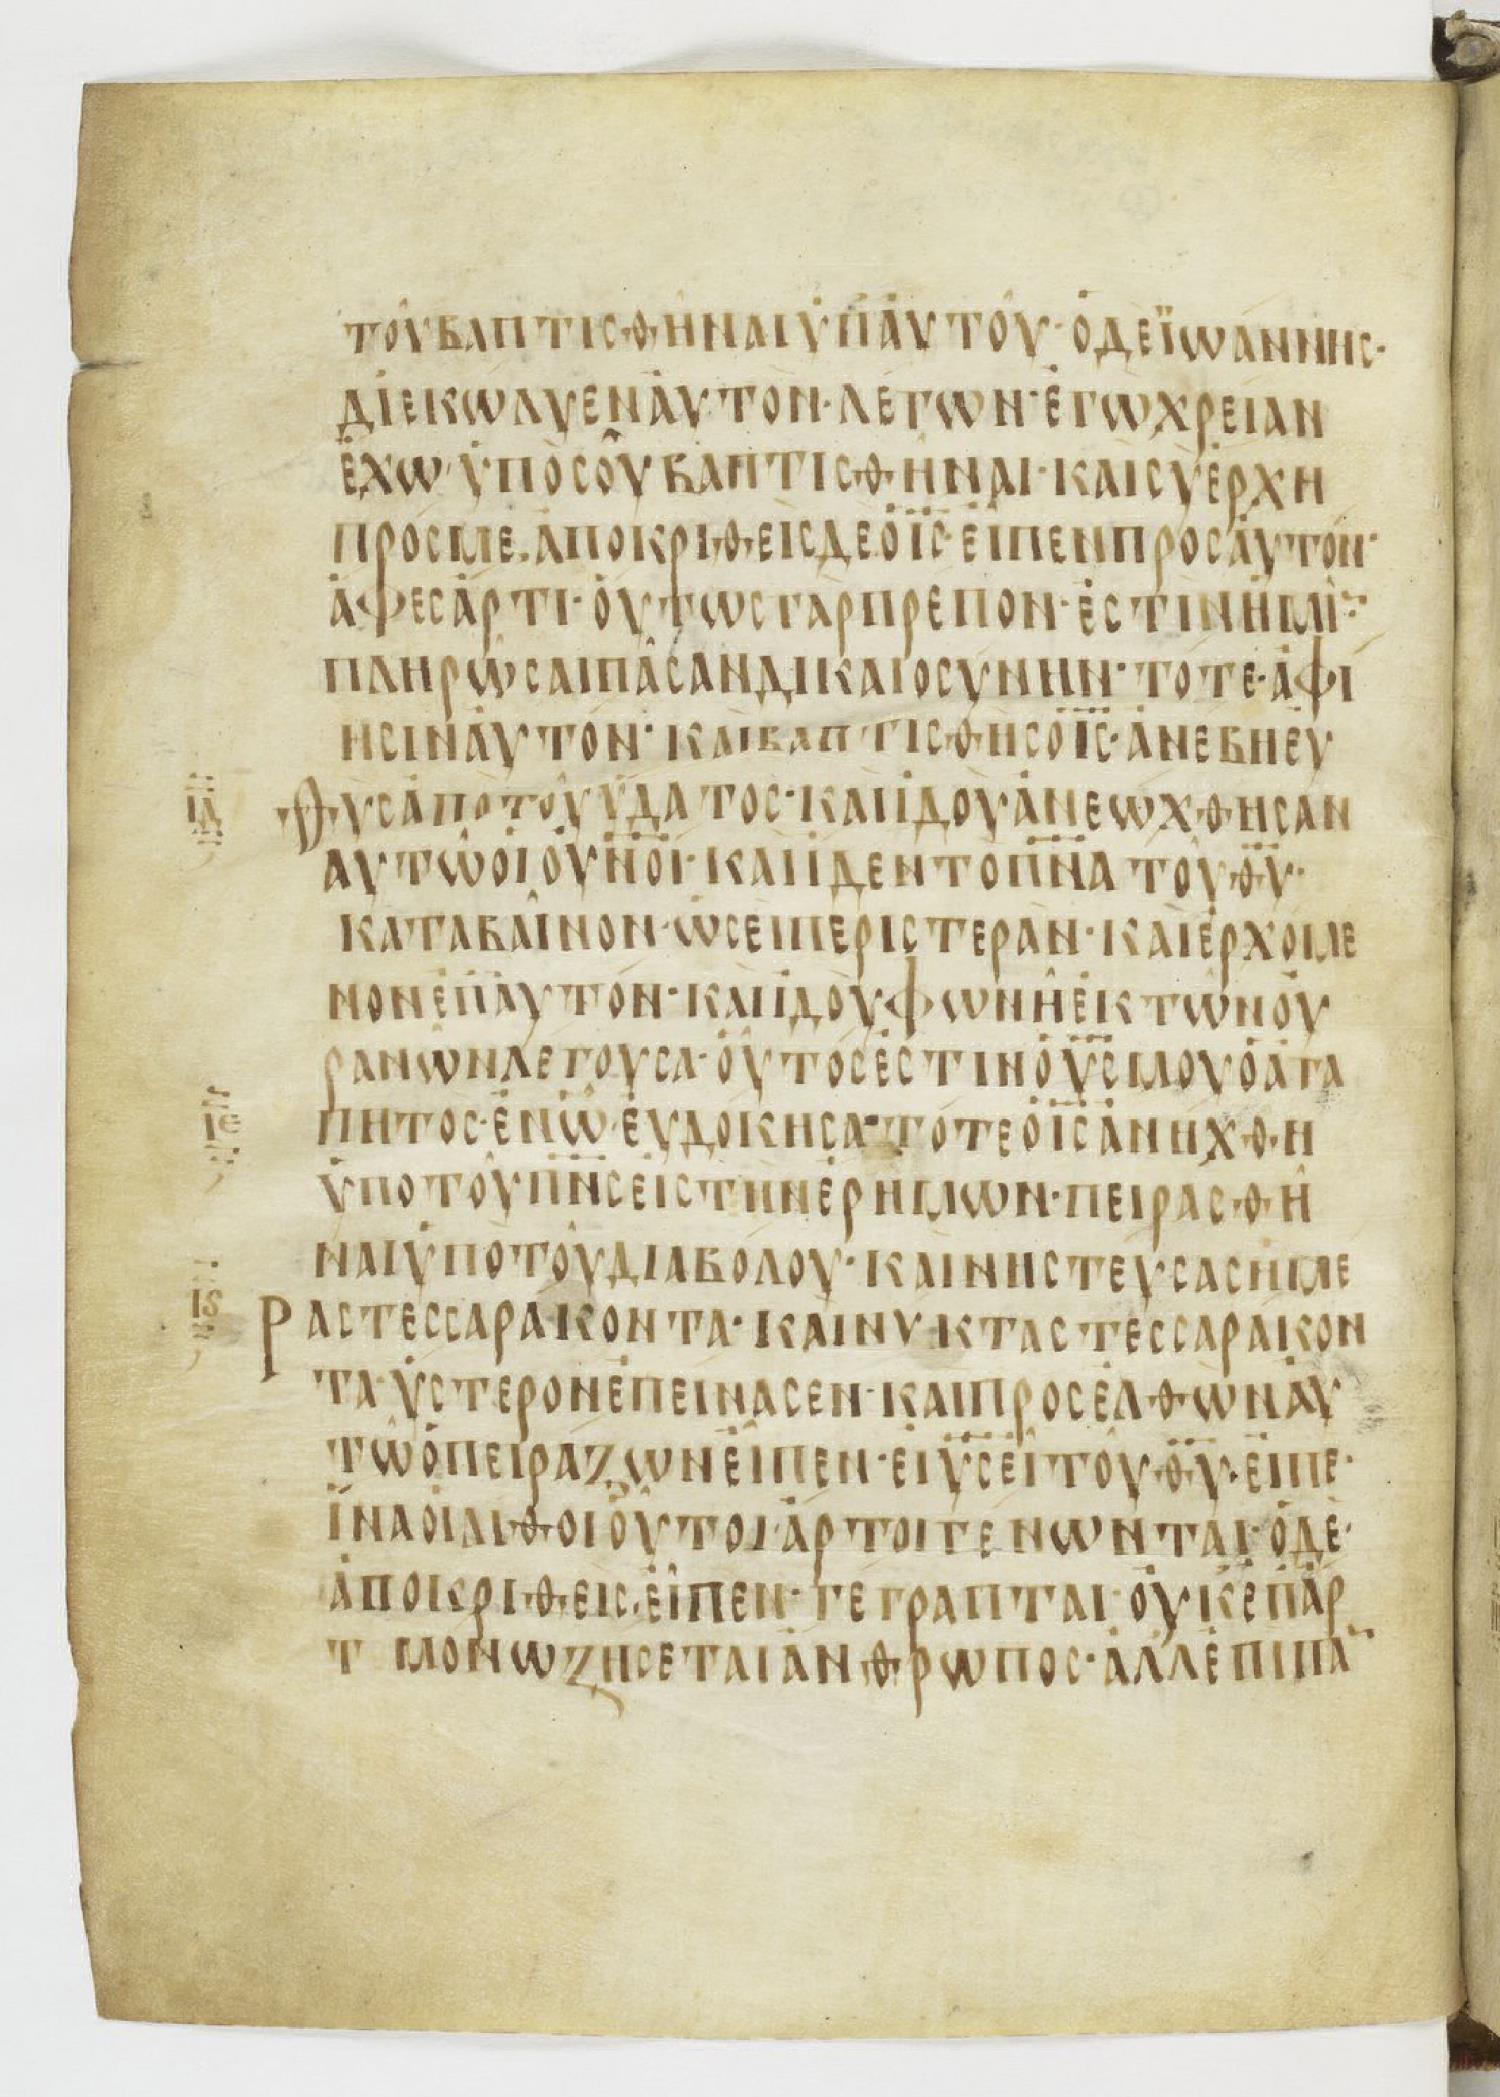 τοῦ βαπτισθῆναι ὑπ' αὐτοῦ· ὁ δὲ ϊωαννης·
διεκωλυεν αὐτον· λεγων· ἐγω χρειαν
ἐχω· ὑπὸ σοῦ βαπτισθῆναι· και συ ἐρχη
προς με. ἀποκριθεις δε ὁ ις· εἶπεν προς αὐτον·
ἀφες ἀρτι· ὁυτως γαρ πρεπον· ἐστιν ἡμῖ
πληρῶσαι πᾶσαν δικαιοσυνην· τοτε· ἀφι
ησιν ἀυτον· και βαπτισθης ὁ ις· ἀνεβη ἐυ
ΙΔ θυς ἀπο τοῦ ὑδατος· και ἰδου ἀνεωχθησαν
αυτῶ οἱ οὐνοι· και ἰδεν το πνα τοῦ θυ·
καταβαῖνον· ὡσει περιστεραν· και ἐρχομε
νον ἐπ' ἀυτον· και ἰδου φωνὴ ἐκ τῶν οὐ
ρανῶν λεγουσα· οὗτος ἐστιν ὁ υς μου ὁ ἀγα
ΙΕ πητος· ἐν ὧ· ἐυδοκησα· τοτε ὁ ις ἀνηχθη
ὑπο τοῦ πνς εἰς τὴν ἐρημων· πειρασθῆ
ναι ὑπο τοῦ διαβολου· και νηστευσας ἡμε
Ις ρας τεσσαρακοντα· και νυκτας τεσσαρακον
τα· ὑστερον ἐπεινασεν· και προσελθων ἀυ
τῶ ὁ πειραζων εἶπεν· εἰ υς εἶ τοῦ θυ· ἐιπε·
ἵνα ὁι λιθοι οὗτοι· ἀρτοι γενωνται· ὁ δε·
ἀποκριθεις· εἶπεν· γεγραπται· οὐκ ἐπ' ἀρ
τ μονω ζησεται ἀνθρωπος· ἀλλ' ἐπι πα